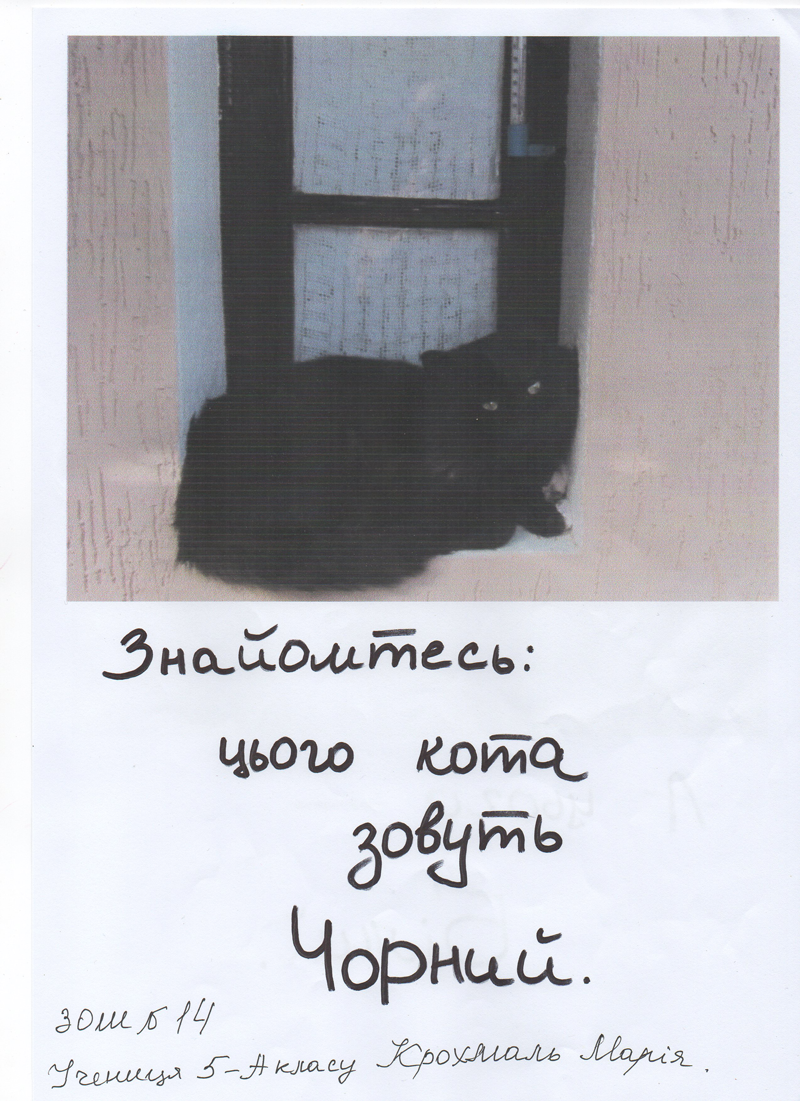 Знайомтесь:
цього кота
зовуть
Чорний.
ЗОШ №14
Учениця 5-А класу Крохмаль Марія.